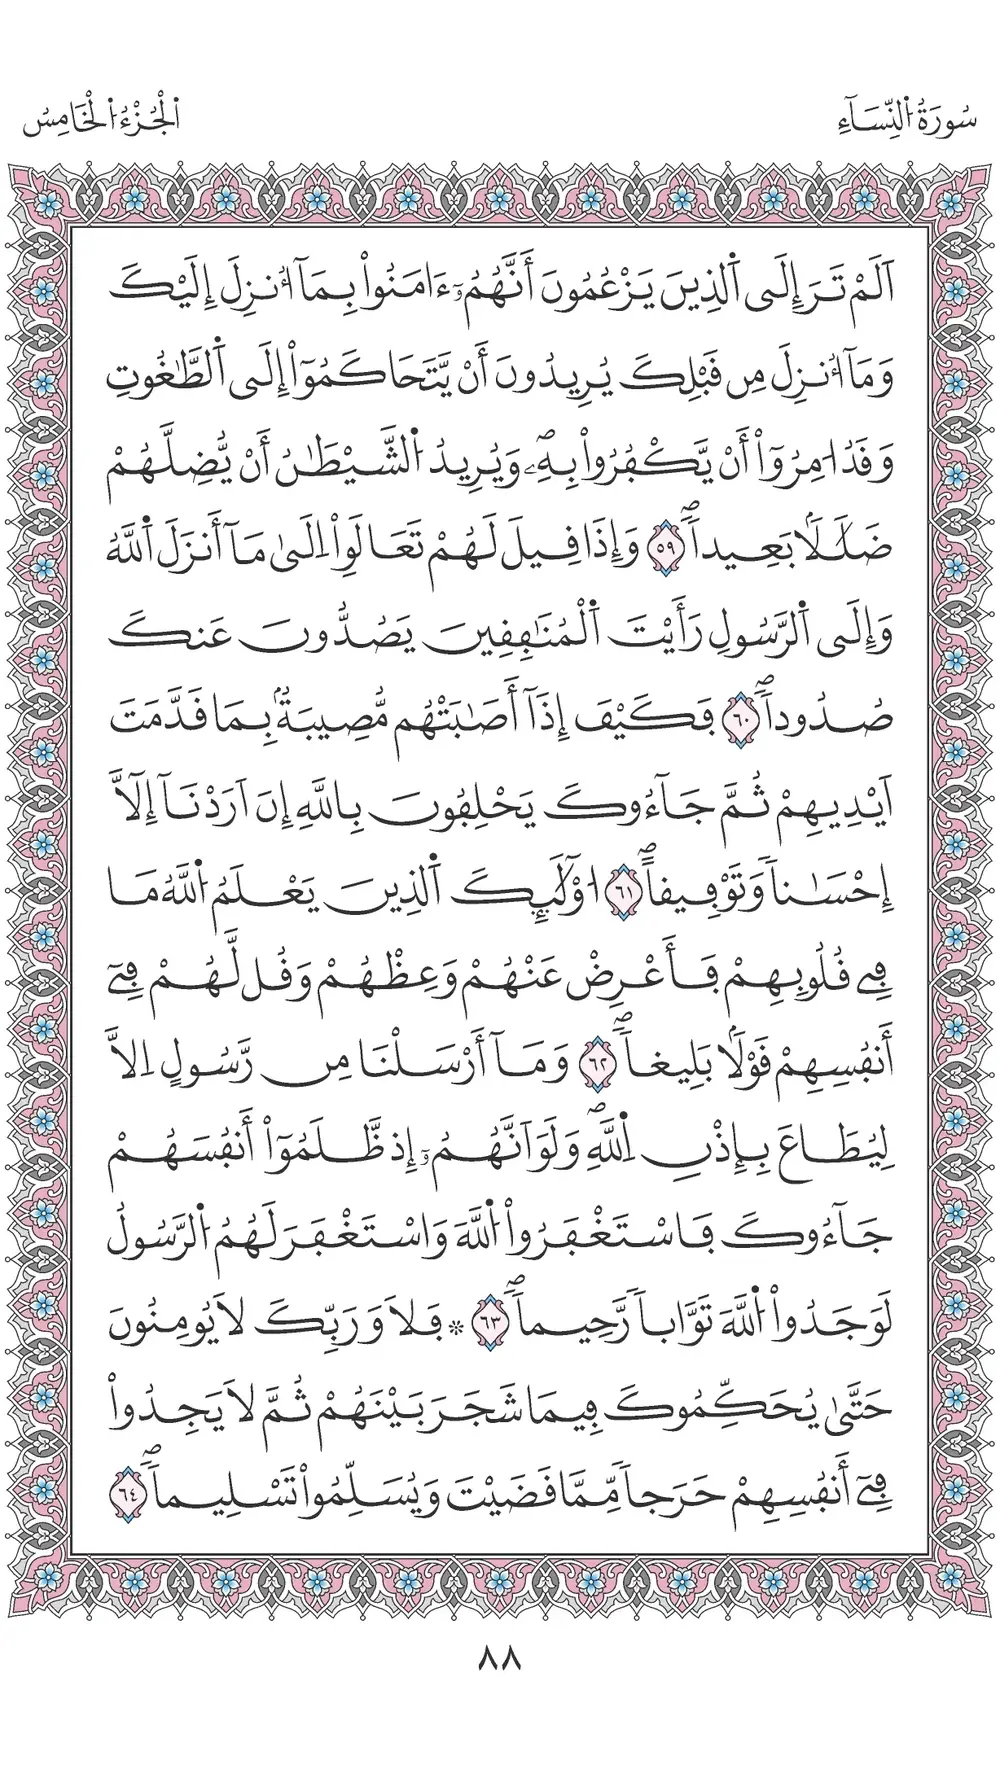 سُورَةُ اُ۬لنِّسَآءِ
اَ۬لْجُزْءُ اُ۬لْخَامِسُ
اَلَمْ تَرَ إِلَى اَ۬لذِينَ يَزْعُمُونَ أَنَّهُمُۥٓ ءَامَنُواْ بِمَآ أُنزِلَ إِلَيْكَ
وَمَآ أُنزِلَ مِن قَبْلِكَ يُرِيدُونَ أَنْ يَّتَحَاكَمُوٓاْ إِلَى اَ۬لطَّٰغُوتِ
وَقَدُ ا۟مِرُوٓاْ أَنْ يَّكْفُرُواْ بِهِۦۖ وَيُرِيدُ اُ۬لشَّيْطَٰنُ أَنْ يُّضِلَّهُمْ
ضَلَٰلَاۢ بَعِيداٗۖ ٥٩ وَإِذَا قِيلَ لَهُمْ تَعَالَوِاْ اِلَىٰ مَآ أَنزَلَ اَ۬للَّهُ
وَإِلَى اَ۬لرَّسُولِ رَأَيْتَ اَ۬لْمُنَٰفِقِينَ يَصُدُّونَ عَنكَ
صُدُوداٗۖ ٦٠ فَكَيْفَ إِذَآ أَصَٰبَتْهُم مُّصِيبَةُۢ بِمَا قَدَّمَتَ
اَيْدِيهِمْ ثُمَّ جَآءُوكَ يَحْلِفُونَ بِاللَّهِ إِنَ اَرَدْنَآ إِلَّآ
إِحْسَٰناٗ وَتَوْفِيقاًۖ ٦١ ا۟وْلَٰٓئِكَ اَ۬لذِينَ يَعْلَمُ اُ۬للَّهُ مَا
فِے قُلُوبِهِمْ فَأَعْرِضْ عَنْهُمْ وَعِظْهُمْ وَقُل لَّهُمْ فِےٓ
أَنفُسِهِمْ قَوْلَاۢ بَلِيغاٗۖ ٦٢ وَمَآ أَرْسَلْنَا مِن رَّسُولٍ اِلَّا
لِيُطَاعَ بِإِذْنِ اِ۬للَّهِۖ وَلَوَ اَنَّهُمُۥٓ إِذ ظَّلَمُوٓاْ أَنفُسَهُمْ
جَآءُوكَ فَاسْتَغْفَرُواْ اُ۬للَّهَ وَاسْتَغْفَرَ لَهُمُ اُ۬لرَّسُولُ
لَوَجَدُواْ اُ۬للَّهَ تَوَّاباٗ رَّحِيماٗۖ ٦٣ * فَلَا وَرَبِّكَ لَا يُومِنُونَ
حَتَّىٰ يُحَكِّمُوكَ فِيمَا شَجَرَ بَيْنَهُمْ ثُمَّ لَا يَجِدُواْ
فِےٓ أَنفُسِهِمْ حَرَجاٗ مِّمَّا قَضَيْتَ وَيُسَلِّمُواْ تَسْلِيماٗۖ ٦٤
٨٨